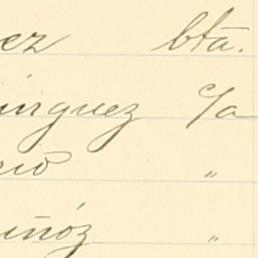 ez bta.
inguez c/a
rio "
iñóz "